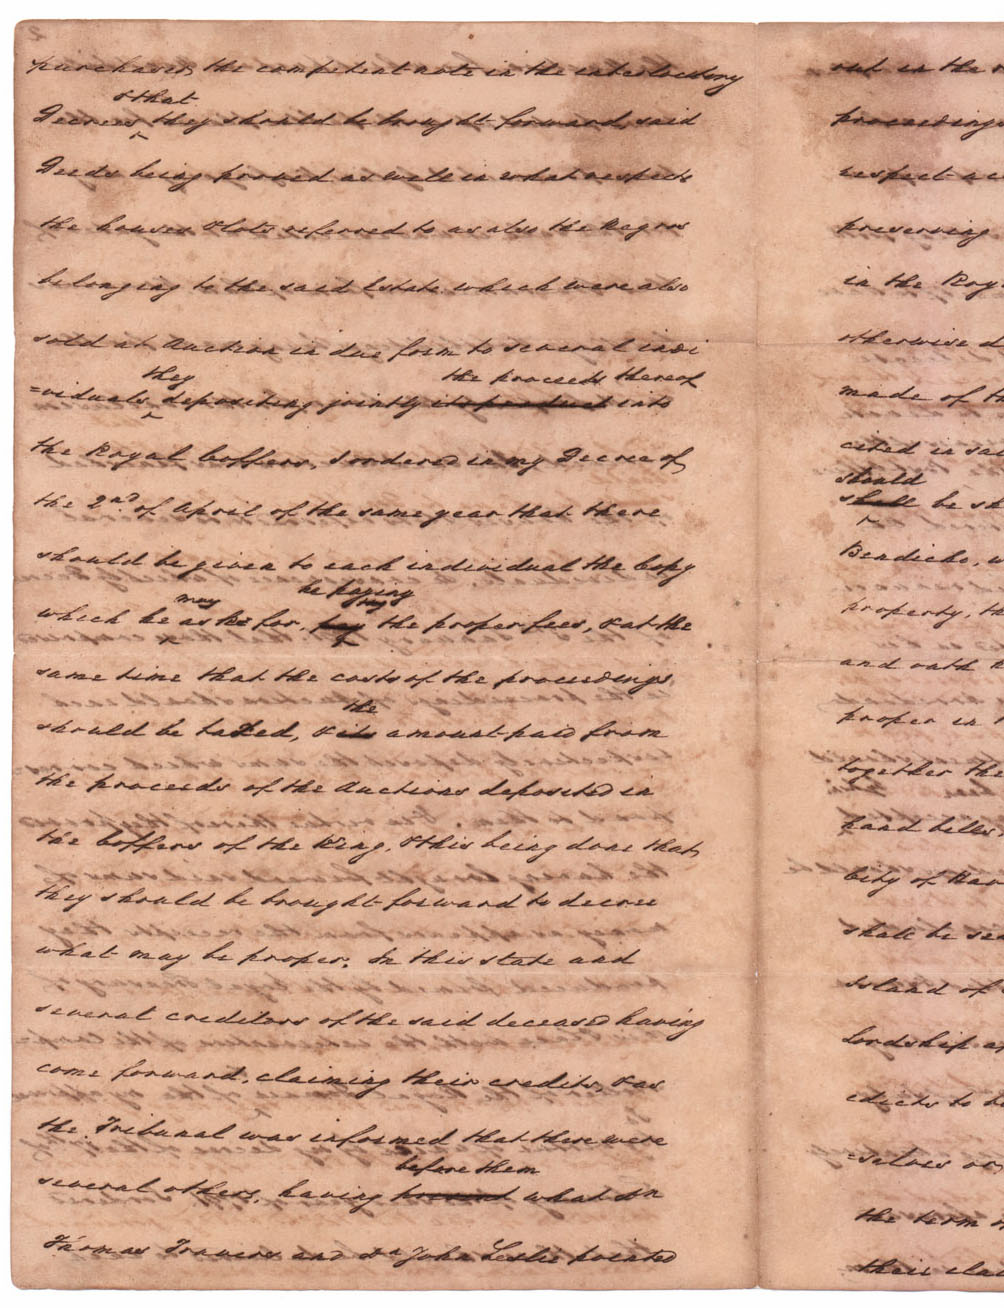 2
purchasers the competent note in the interlocutory
& that
Decrees they should be brought forward, said
Deeds being proved as well in what respects
the houses & lots referred to as also the Negros
belonging to the said Estate which were also
sold at Auction in due form to several indi
they the proceeds thereof
=viduals depositing jointly its product into
the Royal Coffers, I ordered in my Decree of
the 2nd. of April of the same year that there
should be given to each individual the Copy
may he paying
which he asks for, pay the proper fees, & at the
same time that the costs of the proceedings
the
should be taxed, & its amount paid from
the proceeds of the Auctions deposited in
the Coffers of the King, & this being done that
they should be brought forward to decree
what may be proper. In this state and
several creditors of the said deceased having
come forward, claiming their credits, & as
the Tribunal was informed that there were
before them
several others, having what Dn
Thomas Travers and Dn John Leslie pointed
out in the
proceedings
respect
preserving
in the Roy
otherwise d
made of th
cited in sai
should
shall be sh
Bendicho, w
property, th
and oath
proper in
together the
hand bills,
City of Hav
shall be sen
Island of
Lordship
edicts to b
=selves or
the term
their clai